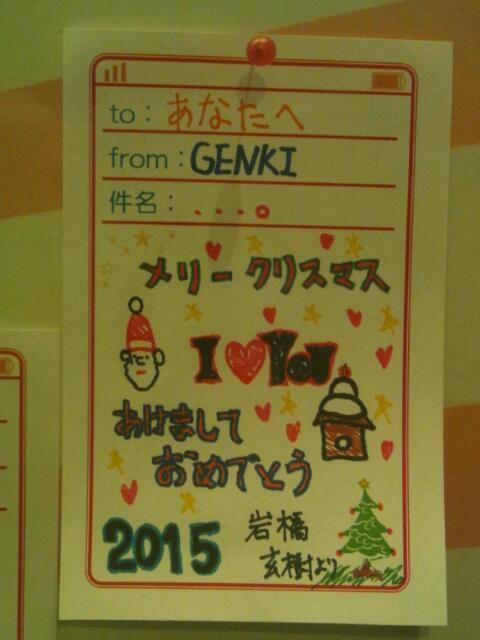 to：あなたへ
from：GENKI
件名：...。
メリークリスマス
I♥YOU
あけまして
おめでとう
2015
岩橋
玄樹より